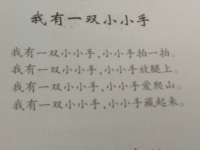 我有一双小小手
我有一双小小手,小小手拍一拍。
我有一双小小手,小小手放腿上。
我有一双小小手,小小手爱爬山。
我有一双小小手,小小手藏起来。